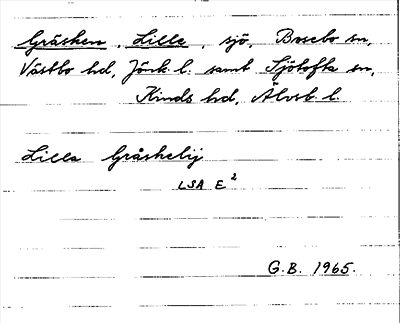 Gräsken, Lilla, sjö, Bosebo sn,
Västbo hd, Jönk. l. samt Sjötofta sn,
Kinds hd, Älvsb. l.
Lilla Gräskelij
LSA E²
G.B. 1965.